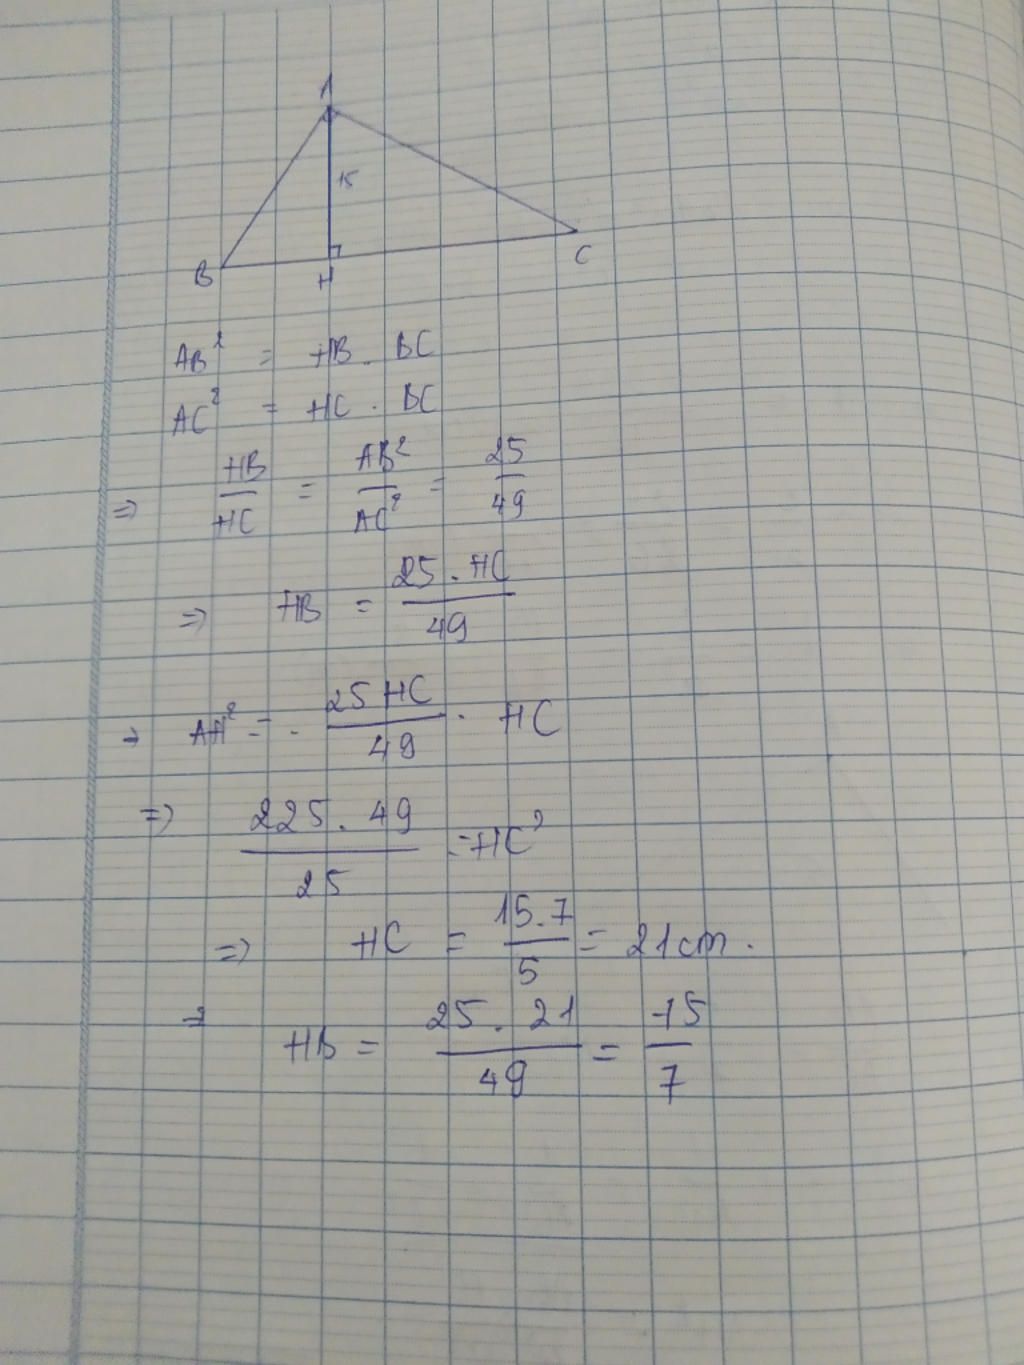 A
15
B
H
C
AB² = HB . BC
AC² = HC . BC
=> HB/HC = AB²/AC² = 25/49
=> HB = 25 . HC / 49
→ AH² = . 25 HC / 49 . HC
=> 225 . 49 / 25 = HC²
=> HC = 15.7 / 5 = 21 cm .
=> HB = 25 . 21 / 49 = 75 / 7